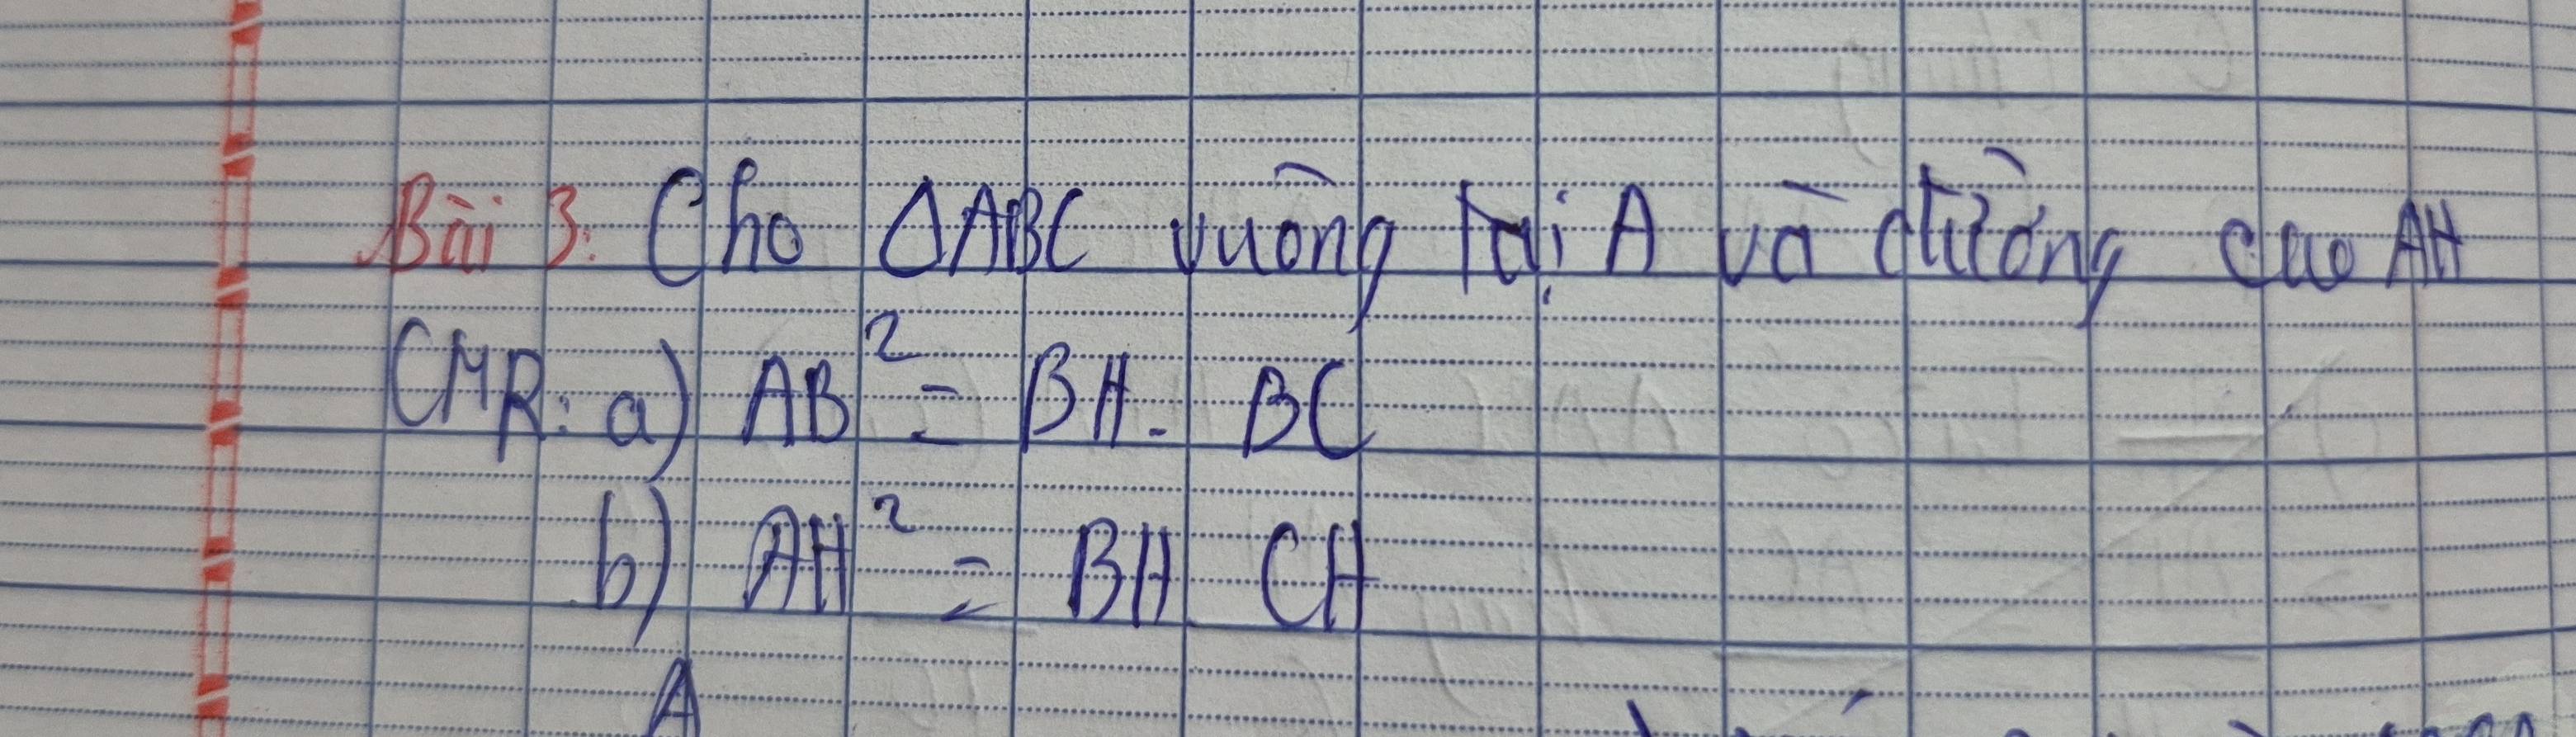 Bài 3: Cho ΔABC vuông tại A và đường cao AH
CMR: a) AB² = BH. BC
b) AH² = BH. CH
A